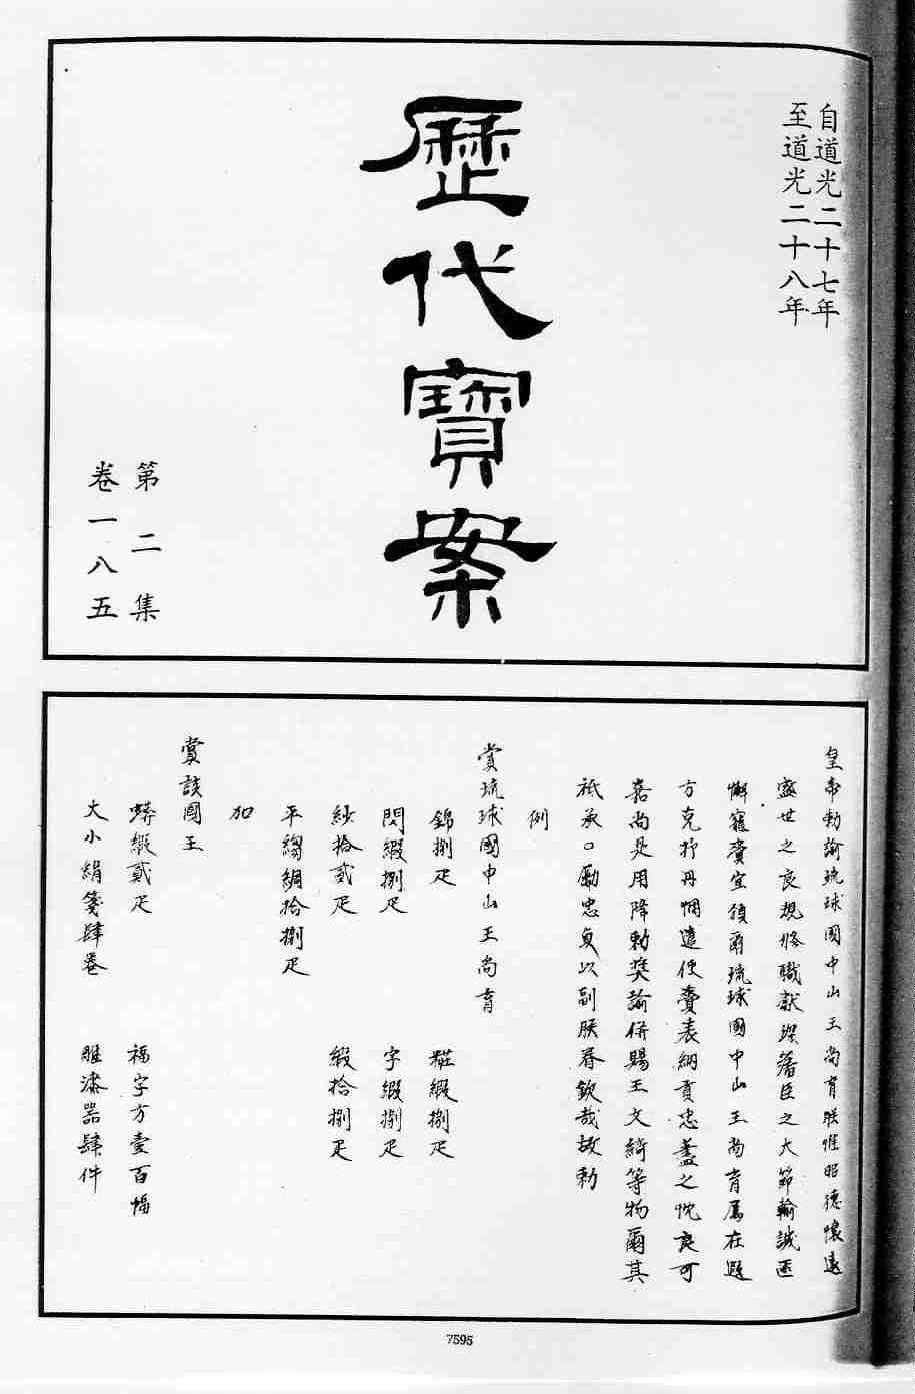 自道光二十七年
至道光二十八年
歷代寶案
第二集
卷一八五
皇帝勅諭琉球國中山王尚育朕惟昭德懷遠
盛世之良規修職獻琛藩臣之大節輸誠匪
懈寵賚宜頒爾琉球國中山王尚育屬在遐
方克抒丹悃遣使賫表納貢忠藎之忱良可
嘉尚是用降勅奨諭併賜王文綺等物爾其
祇承口勵忠貞以副朕眷欽哉故勅
例
賞琉球國中山王尚育
錦捌疋 粧緞捌疋
閃緞捌疋 字緞捌疋
紗拾貳疋 緞拾捌疋
平縐綢拾捌疋
加
賞該國王
蟒緞貳疋 福字方壹百幅
大小絹箋肆卷 雕漆器肆件
7595